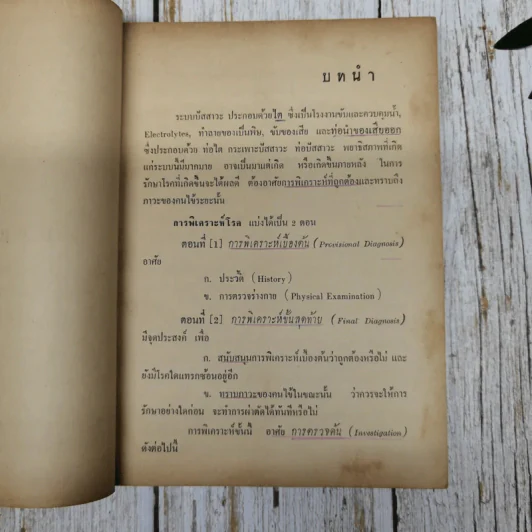 บทนำ
ระบบปัสสาวะ ประกอบด้วยไต ซึ่งเป็นโรงงานขับและควบคุมน้ำ,
Electrolytes, ทำลายของเป็นพิษ, ขับของเสีย และท่อนำของเสียออก
ซึ่งประกอบด้วย ท่อไต กระเพาะปัสสาวะ ท่อปัสสาวะ พยาธิสภาพที่เกิด
แก่ระบบนี้มีมากมาย อาจเป็นมาแต่เกิด หรือเกิดขึ้นภายหลัง ในการ
รักษาโรคที่เกิดขึ้นจะได้ผลดี ต้องอาศัยการพิเคราะห์ที่ถูกต้องและทราบถึง
ภาวะของคนไข้ระยะนั้น
การพิเคราะห์โรค แบ่งได้เป็น 2 ตอน
ตอนที่ [1] การพิเคราะห์เบื้องต้น (Provisional Diagnosis)
อาศัย
ก. ประวัติ (History)
ข. การตรวจร่างกาย (Physical Examination)
ตอนที่ [2] การพิเคราะห์ขั้นสุดท้าย (Final Diagnosis)
มีจุดประสงค์ เพื่อ
ก. สนับสนุนการพิเคราะห์เบื้องต้นว่าถูกต้องหรือไม่ และ
ยังมีโรคใดแทรกซ้อนอยู่อีก
ข. ทราบภาวะของคนไข้ในขณะนั้น ว่าควรจะให้การ
รักษาอย่างใดก่อน จะทำการผ่าตัดได้ทันทีหรือไม่
การพิเคราะห์ขั้นนี้ อาศัย การตรวจค้น (Investigation)
ดังต่อไปนี้